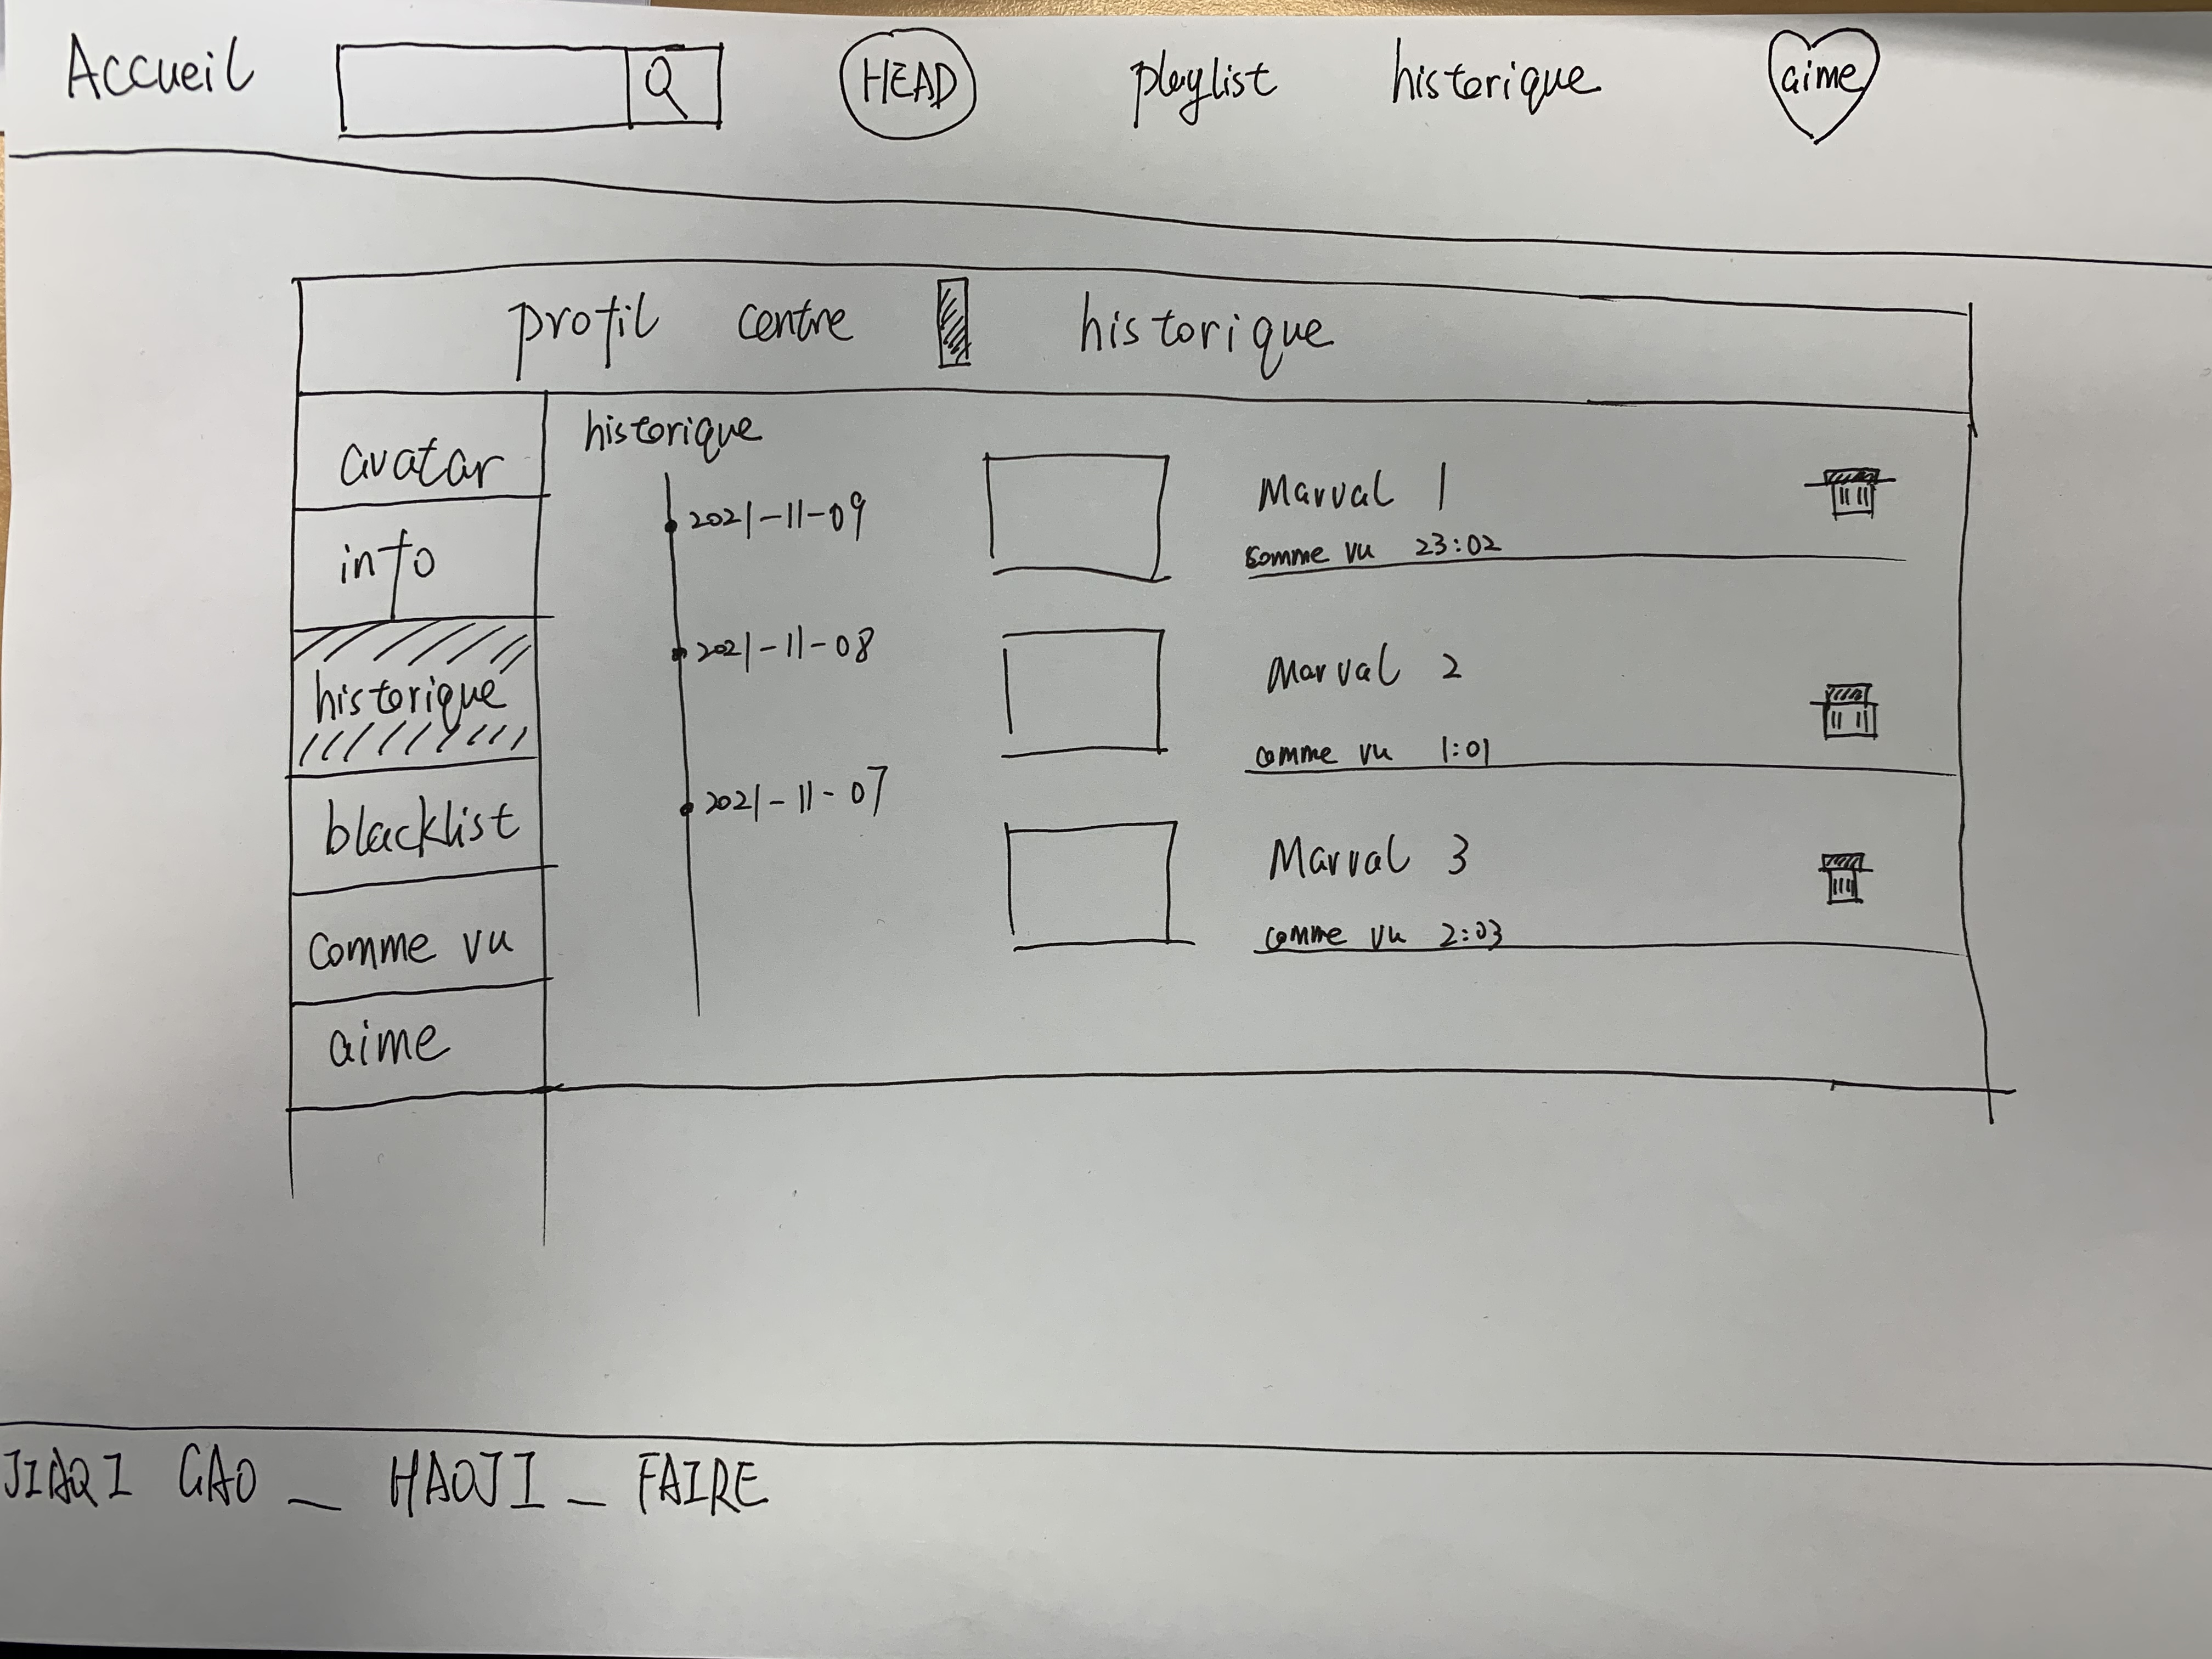 Accueil HEAD playlist historique aime
profil centre historique
avatar
info
historique
blacklist
comme vu
aime
historique
2021-11-09
2021-11-08
2021-11-07
Marval 1
comme vu 23:02
Marval 2
comme vu 1:01
Marval 3
comme vu 2:03
JIAQI GAO _ HAOJI _ FAIRE